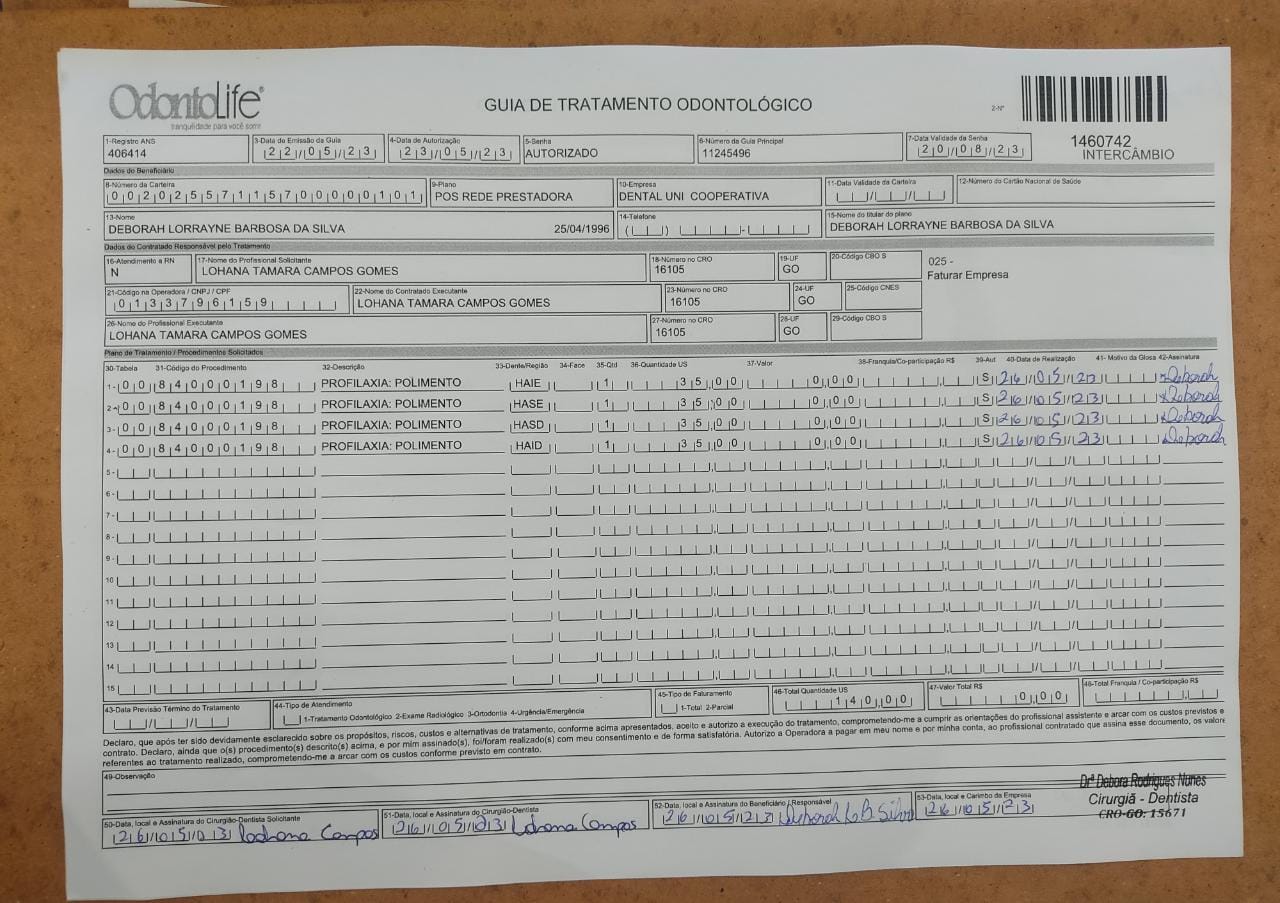 OdontoLife®
tranquilidade para você sorrir
GUIA DE TRATAMENTO ODONTOLÓGICO
2-Nº
1460742
INTERCÂMBIO
1-Registro ANS 3-Data de Emissão da Guia 4-Data de Autorização 5-Senha 6-Número da Guia Principal 7-Data Validade da Senha
406414 22/05/23 23/05/23 AUTORIZADO 11245496 20/08/23
Dados do Beneficiário
8-Número da Carteira 9-Plano 10-Empresa 11-Data Validade da Carteira 12-Número do Cartão Nacional de Saúde
00202557115700000101 POS REDE PRESTADORA DENTAL UNI COOPERATIVA
13-Nome 14-Telefone 15-Nome do titular do plano
DEBORAH LORRAYNE BARBOSA DA SILVA 25/04/1996 DEBORAH LORRAYNE BARBOSA DA SILVA
Dados do Contratado Responsável pelo Tratamento
16-Atendimento a RN 17-Nome do Profissional Solicitante 18-Número no CRO 19-UF 20-Código CBO S
N LOHANA TAMARA CAMPOS GOMES 16105 GO
025 -
Faturar Empresa
21-Código na Operadora / CNPJ / CPF 22-Nome do Contratado Executante 23-Número no CRO 24-UF 25-Código CNES
0133796159 LOHANA TAMARA CAMPOS GOMES 16105 GO
26-Nome do Profissional Executante 27-Número no CRO 28-UF 29-Código CBO S
LOHANA TAMARA CAMPOS GOMES 16105 GO
Plano de Tratamento / Procedimentos Solicitados
30-Tabela 31-Código do Procedimento 32-Descrição 33-Dente/Região 34-Face 35-Qtd 36-Quantidade US 37-Valor 38-Franquia/Co-participação R$ 39-Aut 40-Data de Realização 41- Motivo da Glosa 42-Assinatura
1- 00 84000198 PROFILAXIA: POLIMENTO HAIE 1 35,00 0,00 S 26/05/23 Deborah
2- 00 84000198 PROFILAXIA: POLIMENTO HASE 1 35,00 0,00 S 26/05/23 Deborah
3- 00 84000198 PROFILAXIA: POLIMENTO HASD 1 35,00 0,00 S 26/05/23 Deborah
4- 00 84000198 PROFILAXIA: POLIMENTO HAID 1 35,00 0,00 S 26/05/23 Deborah
5-
6-
7-
8-
9-
10
11
12
13
14
15
43-Data Previsão Término do Tratamento 44-Tipo de Atendimento 45-Tipo de Faturamento 46-Total Quantidade US 47-Valor Total R$ 48-Total Franquia / Co-participação R$
1-Tratamento Odontológico 2-Exame Radiológico 3-Ortodontia 4-Urgência/Emergência 1-Total 2-Parcial 140,00 0,00
Declaro, que após ter sido devidamente esclarecido sobre os propósitos, riscos, custos e alternativas de tratamento, conforme acima apresentados, aceito e autorizo a execução do tratamento, comprometendo-me a cumprir as orientações do profissional assistente e arcar com os custos previstos e
contrato. Declaro, ainda que o(s) procedimento(s) descrito(s) acima, e por mim assinado(s), foi/foram realizado(s) com meu consentimento e de forma satisfatória. Autorizo a Operadora a pagar em meu nome e por minha conta, ao profissional contratado que assina esse documento, os valore
referentes ao tratamento realizado, comprometendo-me a arcar com os custos conforme previsto em contrato.
49-Observação
Drª Debora Rodrigues Nunes
Cirurgiã - Dentista
CRO-GO: 15671
50-Data, local e Assinatura do Cirurgião-Dentista Solicitante 51-Data, local e Assinatura do Cirurgião-Dentista 52-Data, local e Assinatura do Beneficiário / Responsável 53-Data, local e Carimbo da Empresa
26/05/23 Lohana Campos 26/05/23 Lohana Campos 26/05/23 Deborah L B Silva 26/05/23